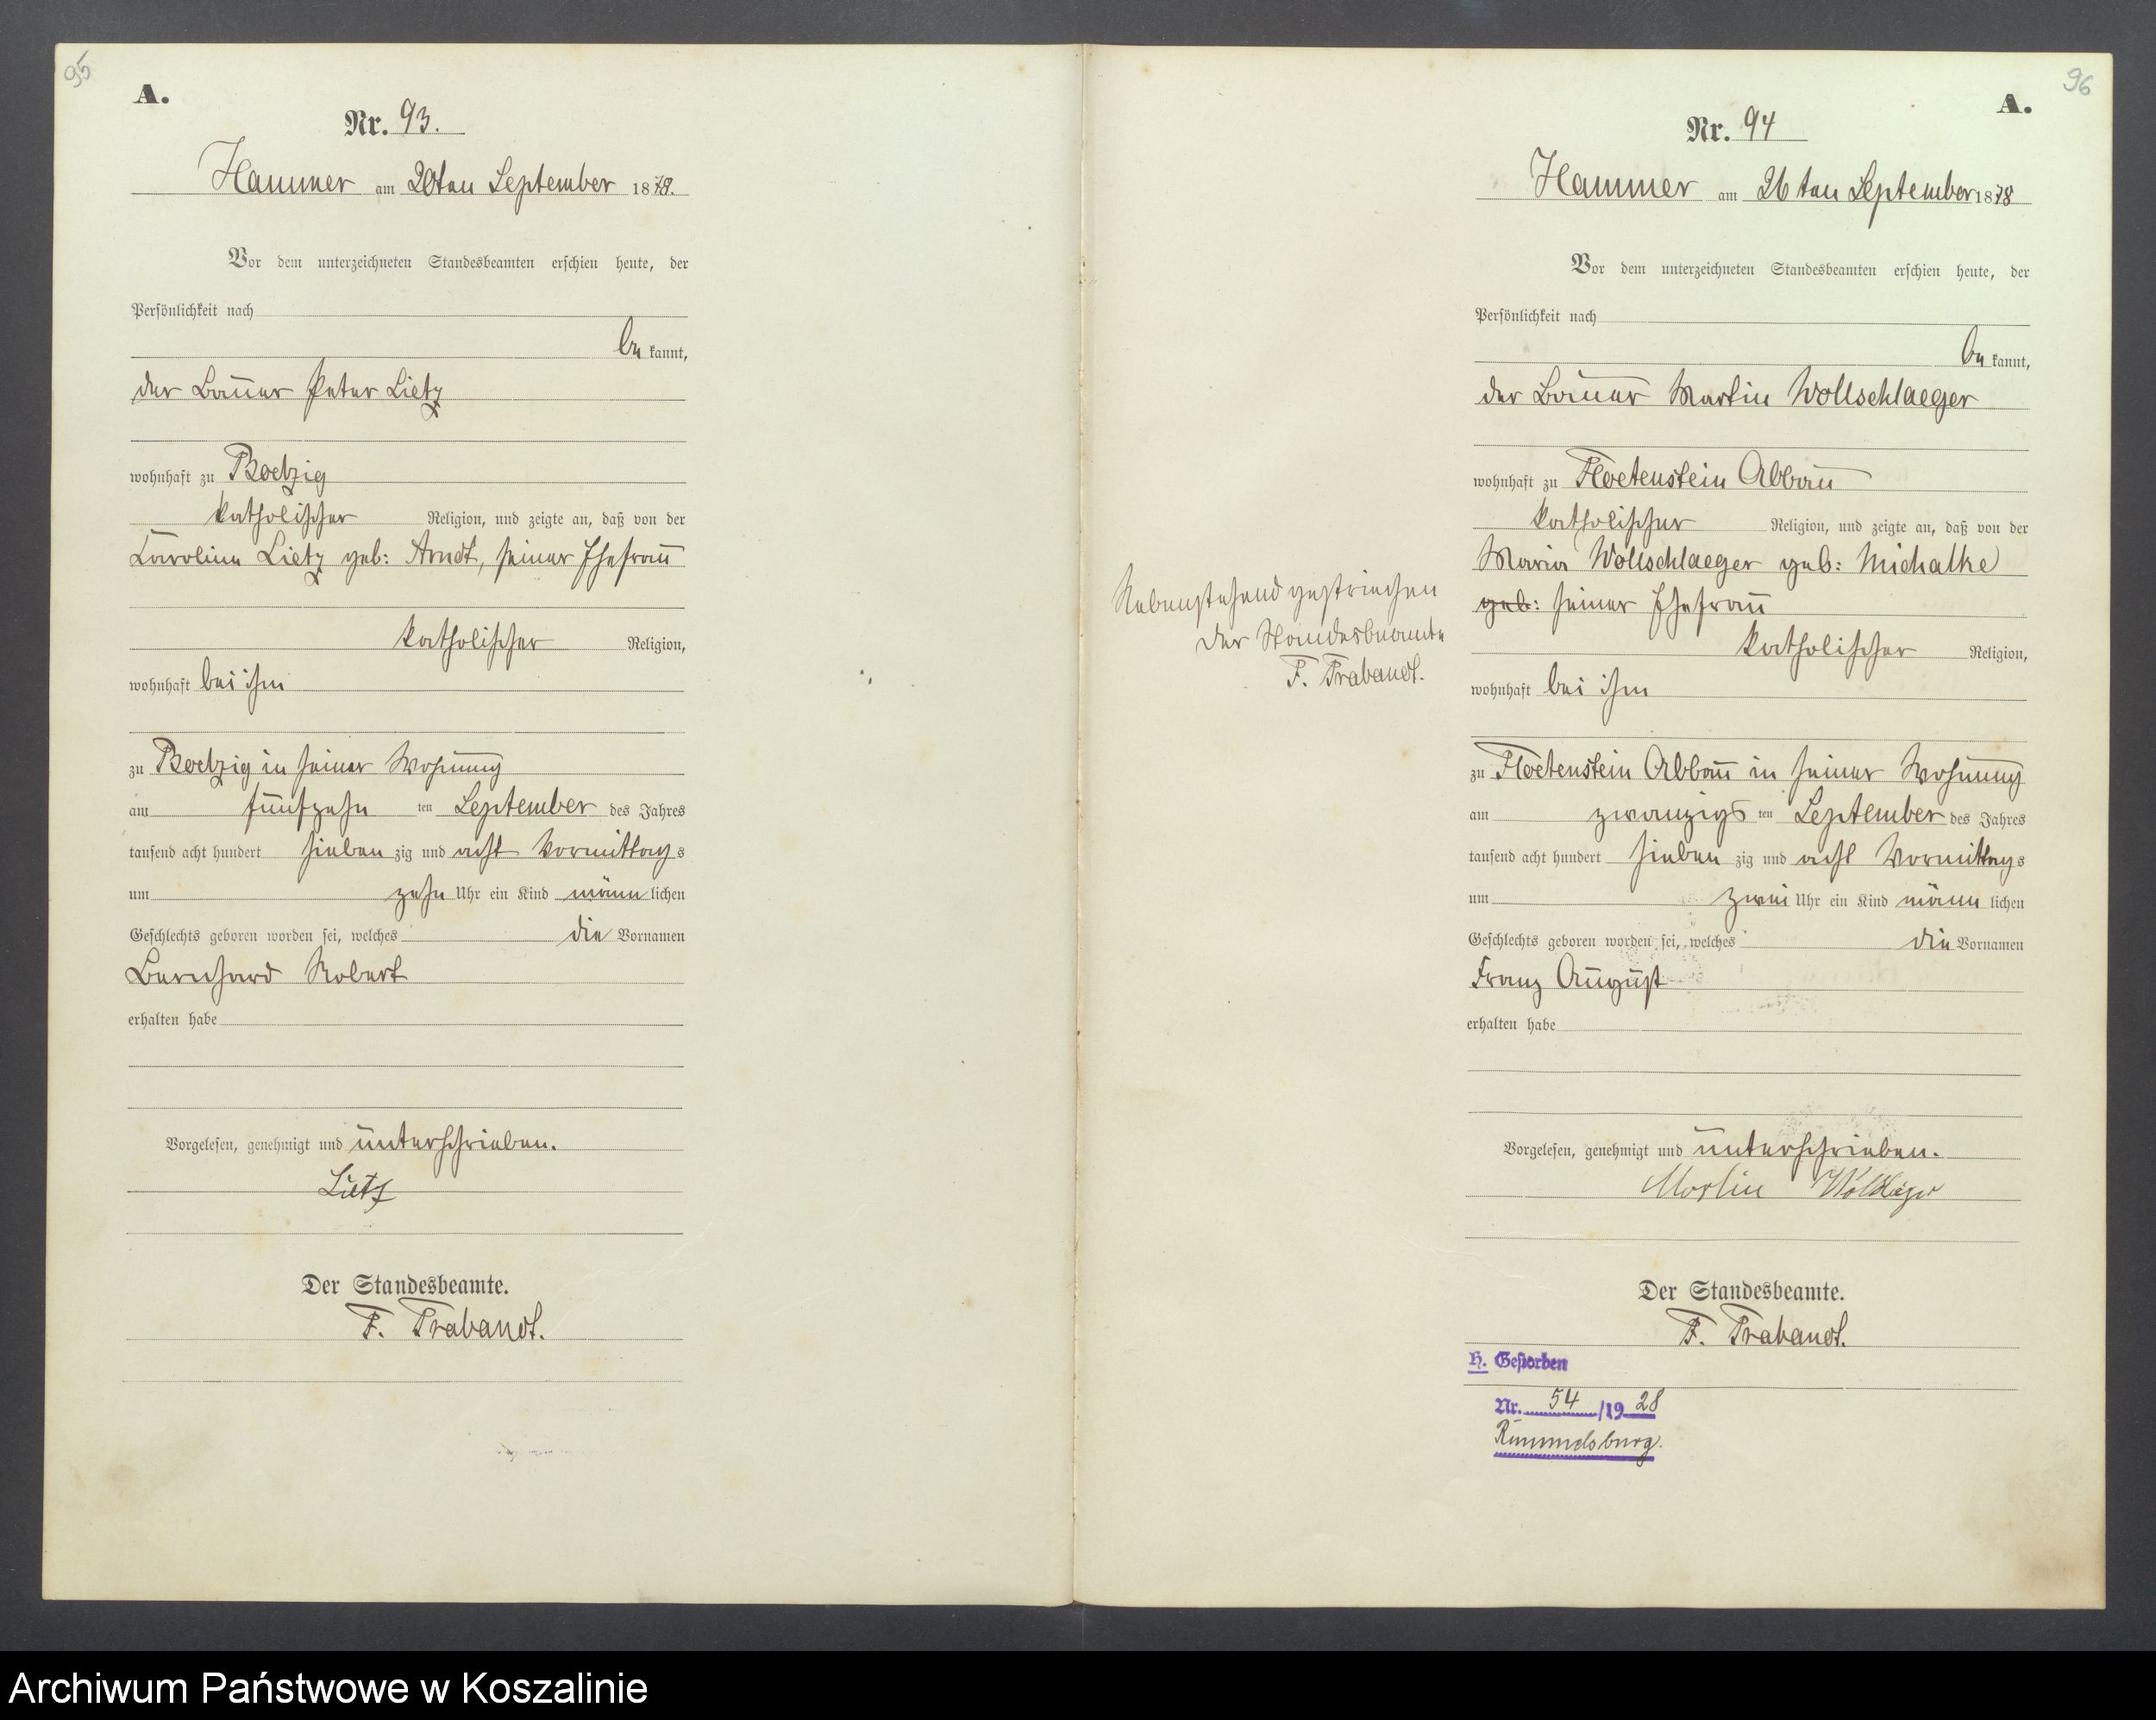 95
A.
Nr. 93.
Hammer am 20ten September 1878.
Vor dem unterzeichneten Standesbeamten erschien heute, der
Persönlichkeit nach
be kannt,
der Bauer Peter Lietz
wohnhaft zu Roetzig
katholischer Religion, und zeigte an, daß von der
Caroline Lietz geb: Arndt, seiner Ehefrau
katholischer Religion,
wohnhaft bei ihm
zu Roetzig in seiner Wohnung
am fünfzehn ten September des Jahres
tausend acht hundert sieben zig und acht Vormittag s
um zehn Uhr ein Kind männ lichen
Geschlechts geboren worden sei, welches die Vornamen
Bernhard Robert
erhalten habe
Vorgelesen, genehmigt und unterschrieben.
Lietz
Der Standesbeamte.
F. Trabandt.
96
A.
Nr. 94
Hammer am 26ten September 1878
Vor dem unterzeichneten Standesbeamten erschien heute, der
Persönlichkeit nach
be kannt,
der Bauer Martin Wollschlaeger
wohnhaft zu Floetenstein Abbau
katholischer Religion, und zeigte an, daß von der
Maria Wollschlaeger geb: Michalke
geb: seiner Ehefrau
katholischer Religion,
wohnhaft bei ihm
zu Floetenstein Abbau in seiner Wohnung
am zwanzigs ten September des Jahres
tausend acht hundert sieben zig und acht Vormittag s
um zwei Uhr ein Kind männ lichen
Geschlechts geboren worden sei, welches die Vornamen
Franz August
erhalten habe
Vorgelesen, genehmigt und unterschrieben.
Martin
Der Standesbeamte.
F. Trabandt.
Nebenstehend gestrichen
Der Standesbeamte
F. Trabandt.
H. Gestorben
Nr. 54 /19 28
Rummelsburg.
Archiwum Państwowe w Koszalinie